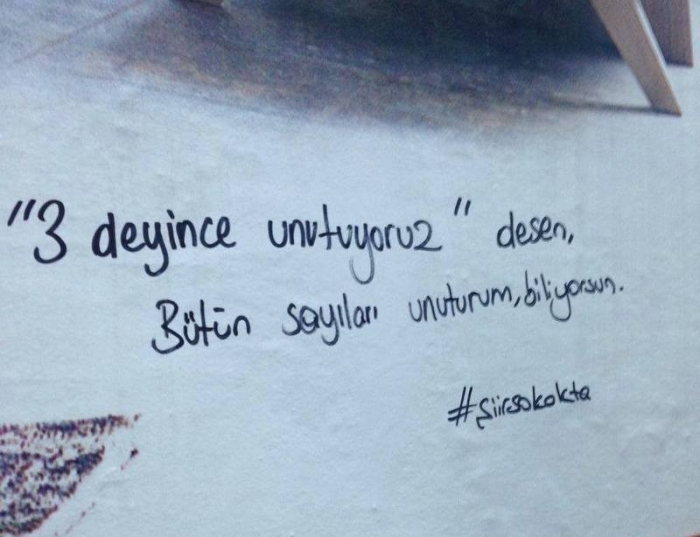 "3 deyince unutuyoruz" desen,
Bütün sayıları unuturum, biliyorsun.
#şiirsokakta